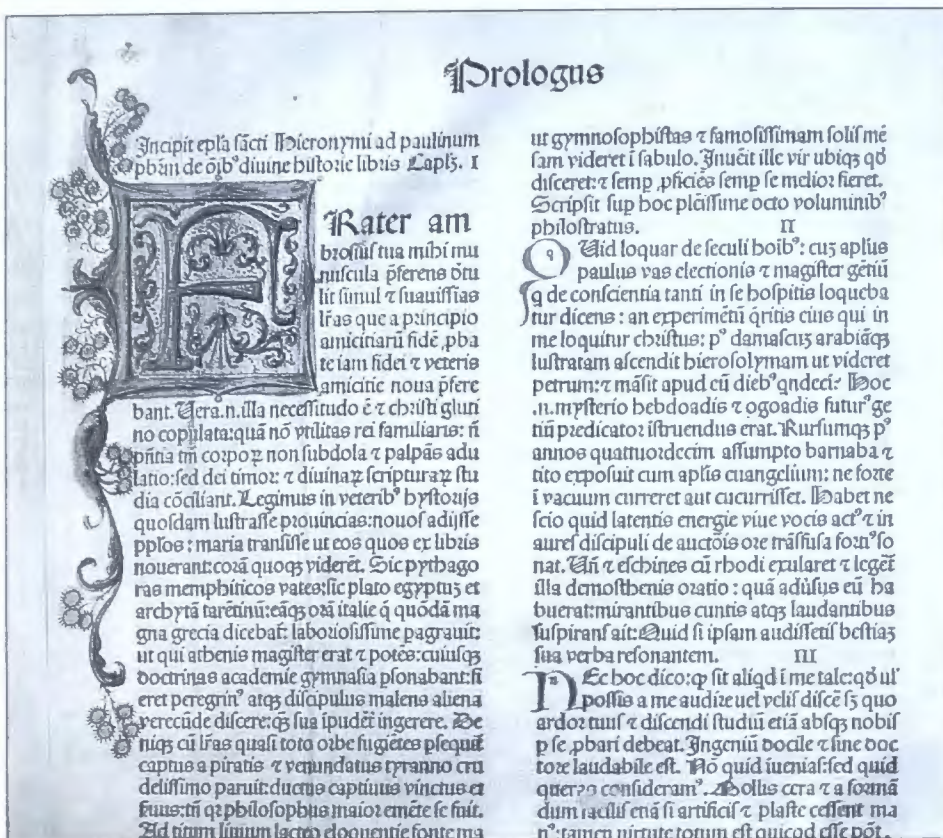 Prologus
Incipit epła sãcti Hieronymi ad paulinum
pbãn de oĩb⁹ diuine historie libris Capłȝ. I
Frater am
brosius tua mihi mu
nuscula p̃ferens dẽtu
lit simul ⁊ suauissias
lr̃as que a principio
amicitiarũ fidẽ ꝓba
te iam fidei ⁊ veteris
amicitie noua p̃fere
bant. Uera.n.illa necessitudo ẽ ⁊ christi gluti
no copulata:quã nõ vtilitas rei familiaris: ñ
pñtia tm̃ corpoꝝ non subdola ⁊ palpãs adu
latio:sed dei timor: ⁊ diuinaꝝ scripturaꝝ stu
dia cõciliant. Legimus in veterib⁹ hystorijs
quosdam lustrasse prouincias:nouos adijsse
pplos: maria transisse ut eos quos ex libris
nouerant:corã quoqȝ viderẽt. Sic pythago
ras memphiticos vates:sic plato egyptuȝ et
archytã tarẽtinũ:eãqȝ orã italie q̃ quõdã ma
gna grecia dicebat̃: laboriosissime pagrauit:
ut qui athenis magister erat ⁊ potẽs:cuiusqȝ
doctrinas academie gymnasia psonabant:fi
eret peregrin⁹ atqȝ discipulus malens aliena
verecũde discere:qȝ sua ĩpudẽt̃ ingerere. De
niqȝ cũ lr̃as quasi toto orbe fugiẽtes psequit̃
captus a piratis ⁊ venundatus tyranno cru
delissimo paruit:ductus captiuus vinctus et
seruus:tñ qꝛ philosophus maior emẽte se fuit.
Ad titum liuium lacteo eloquentie fonte ma
ut gymnosophistas ⁊ famosissimam solis mẽ
sam videret ĩ sabulo. Inuẽit ille vir ubiqȝ qd̃
disceret:⁊ semp ꝓficiẽs semp se melior fieret.
Scripsit sup hoc plẽissime octo voluminib⁹
philostratus. II
Quid loquar de seculi hoĩb⁹: cuȝ aplũs
paulus vas electionis ⁊ magister gẽtiũ
q̃ de conscientia tanti in se hospitis loqueba
tur dicens: an experimẽtũ q̃ritis eius qui in
me loquitur christus: p⁹ damascuȝ arabiãqȝ
lustratam ascendit hierosolymam ut videret
petrum:⁊ mãsit apud eũ dieb⁹ qndecĩ: Hoc
.n.mysterio hebdoadis ⁊ ogoadis futur⁹ ge
tiũ predicator ĩstruendus erat. Rursumqȝ p⁹
annos quattuordecim assumpto barnaba ⁊
tito exposuit cum aplĩs euangelium: ne forte
ĩ vacuum curreret aut cucurrisset. Habet ne
scio quid latentis energie viue vocis act⁹ ⁊ in
aures discipuli de auctõis ore trãsfusa forti⁹ so
nat. Uñ ⁊ eschines cũ rhodi exularet ⁊ legẽt̃
illa demosthenis oratio: quã adũsus eũ ha
buerat:mirantibus cuntis atqȝ laudantibus
suspirans ait:Quid si ipsam audissetis bestiaȝ
sua verba resonantem. III
Nec hoc dico:ꝙ sit aliqd ĩ me tale:qd̃ ul'
possis a me audire uel velis discẽ sȝ quo
ardor tuus ⁊ discendi studiũ etiã absqȝ nobis
p se ꝓbari debeat. Ingeniũ docile ⁊ sine doc
tore laudabile est. Nõ quid iuenias:sed quid
queras consideram⁹. Mollis cera ⁊ a formã
dum facilis etiã si artificis ⁊ plaste cessent ma
n⁹:tamen uirtute totum est quicqd esse põt.